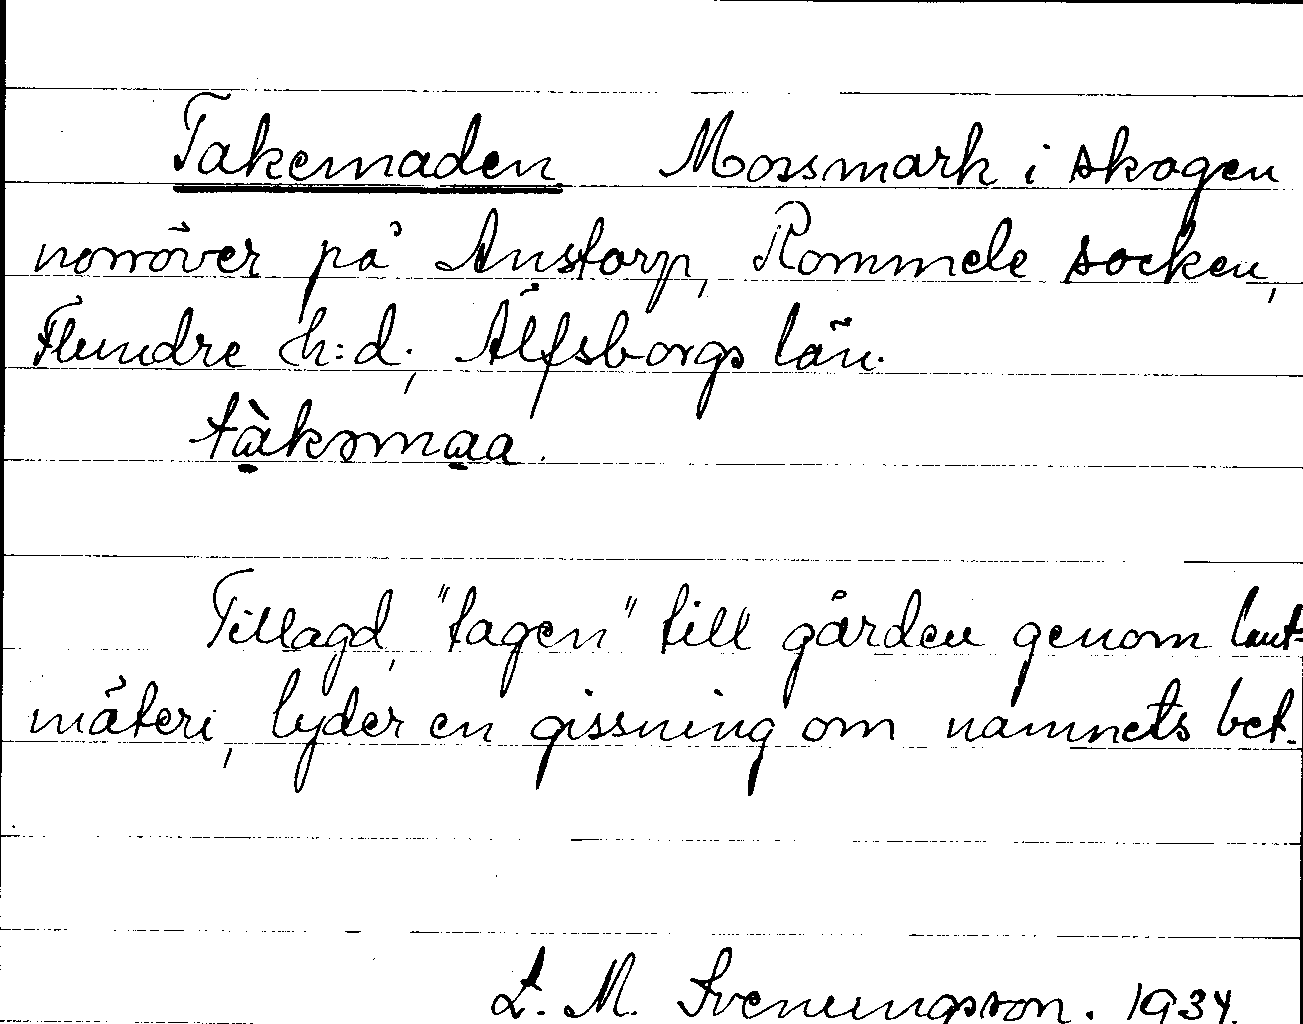 Takemaden Mossmark i skogen
norröver på Anstorp, Rommele socken,
Flundre h:d., Älfsborgs län.
tàkəmaa.
Tillagd, "tagen" till gården genom lant-
mäteri, lyder en gissning om namnets bet.
L. M. Svenungsson. 1934.